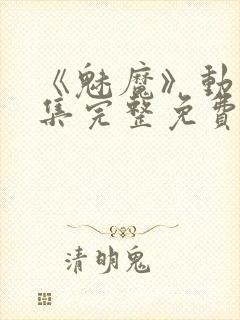 《魅魔》動
集完整免費
清明鬼